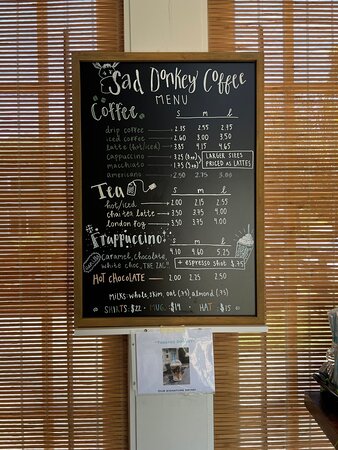 Sad Donkey Coffee
MENU
Coffee
S M L
drip coffee 2.35 2.55 2.75
iced coffee 2.60 3.00 3.50
latte (hot/iced) 3.85 4.15 4.65
cappuccino 3.25 LARGER SIZES
macchiato 1.75 PRICED AS LATTES
americano 2.50 2.75 3.00
Tea
S M L
hot/iced 2.00 2.15 2.55
chai tea latte 3.50 3.75 4.00
london fog 3.50 3.75 4.00
Frappuccino
S M L
4.10 4.60 5.25
caramel, chocolate,
white choc, "THE ZAC" + espresso shot .75
HOT CHOCOLATE 2.00 2.25 2.50
MILKS: whole, skim, oat (.75) almond (.75)
SHIRTS: $22 • MUG: $14 • HAT $15